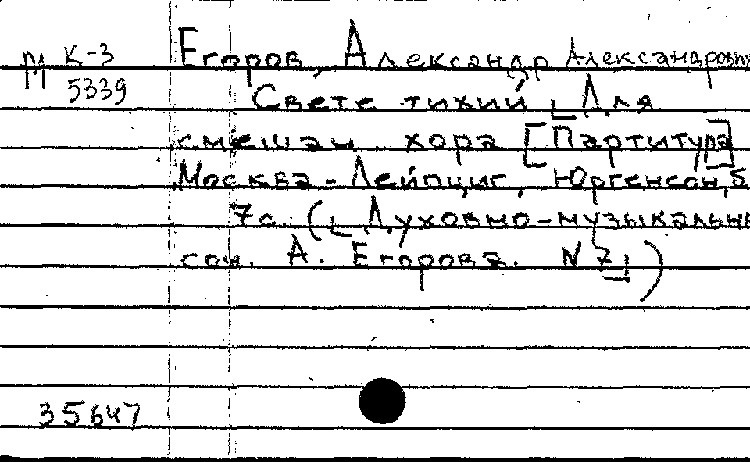 М К-3 Егоров, Александр Александрович
5339 Свете тихий [Для
смешан хора [Партитура]
Москва - Лейпциг, Юргенсон, б
7с. ([Духовно-музыкальн
соч. А. Егорова. N 7])
35647